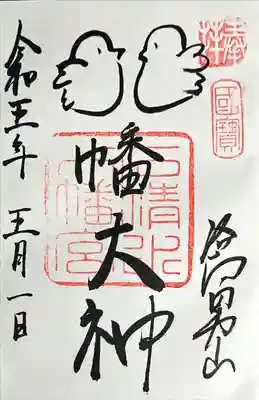 奉拝
國寶
男山
八幡大神
石清水
八幡宮
令和五年 五月一日